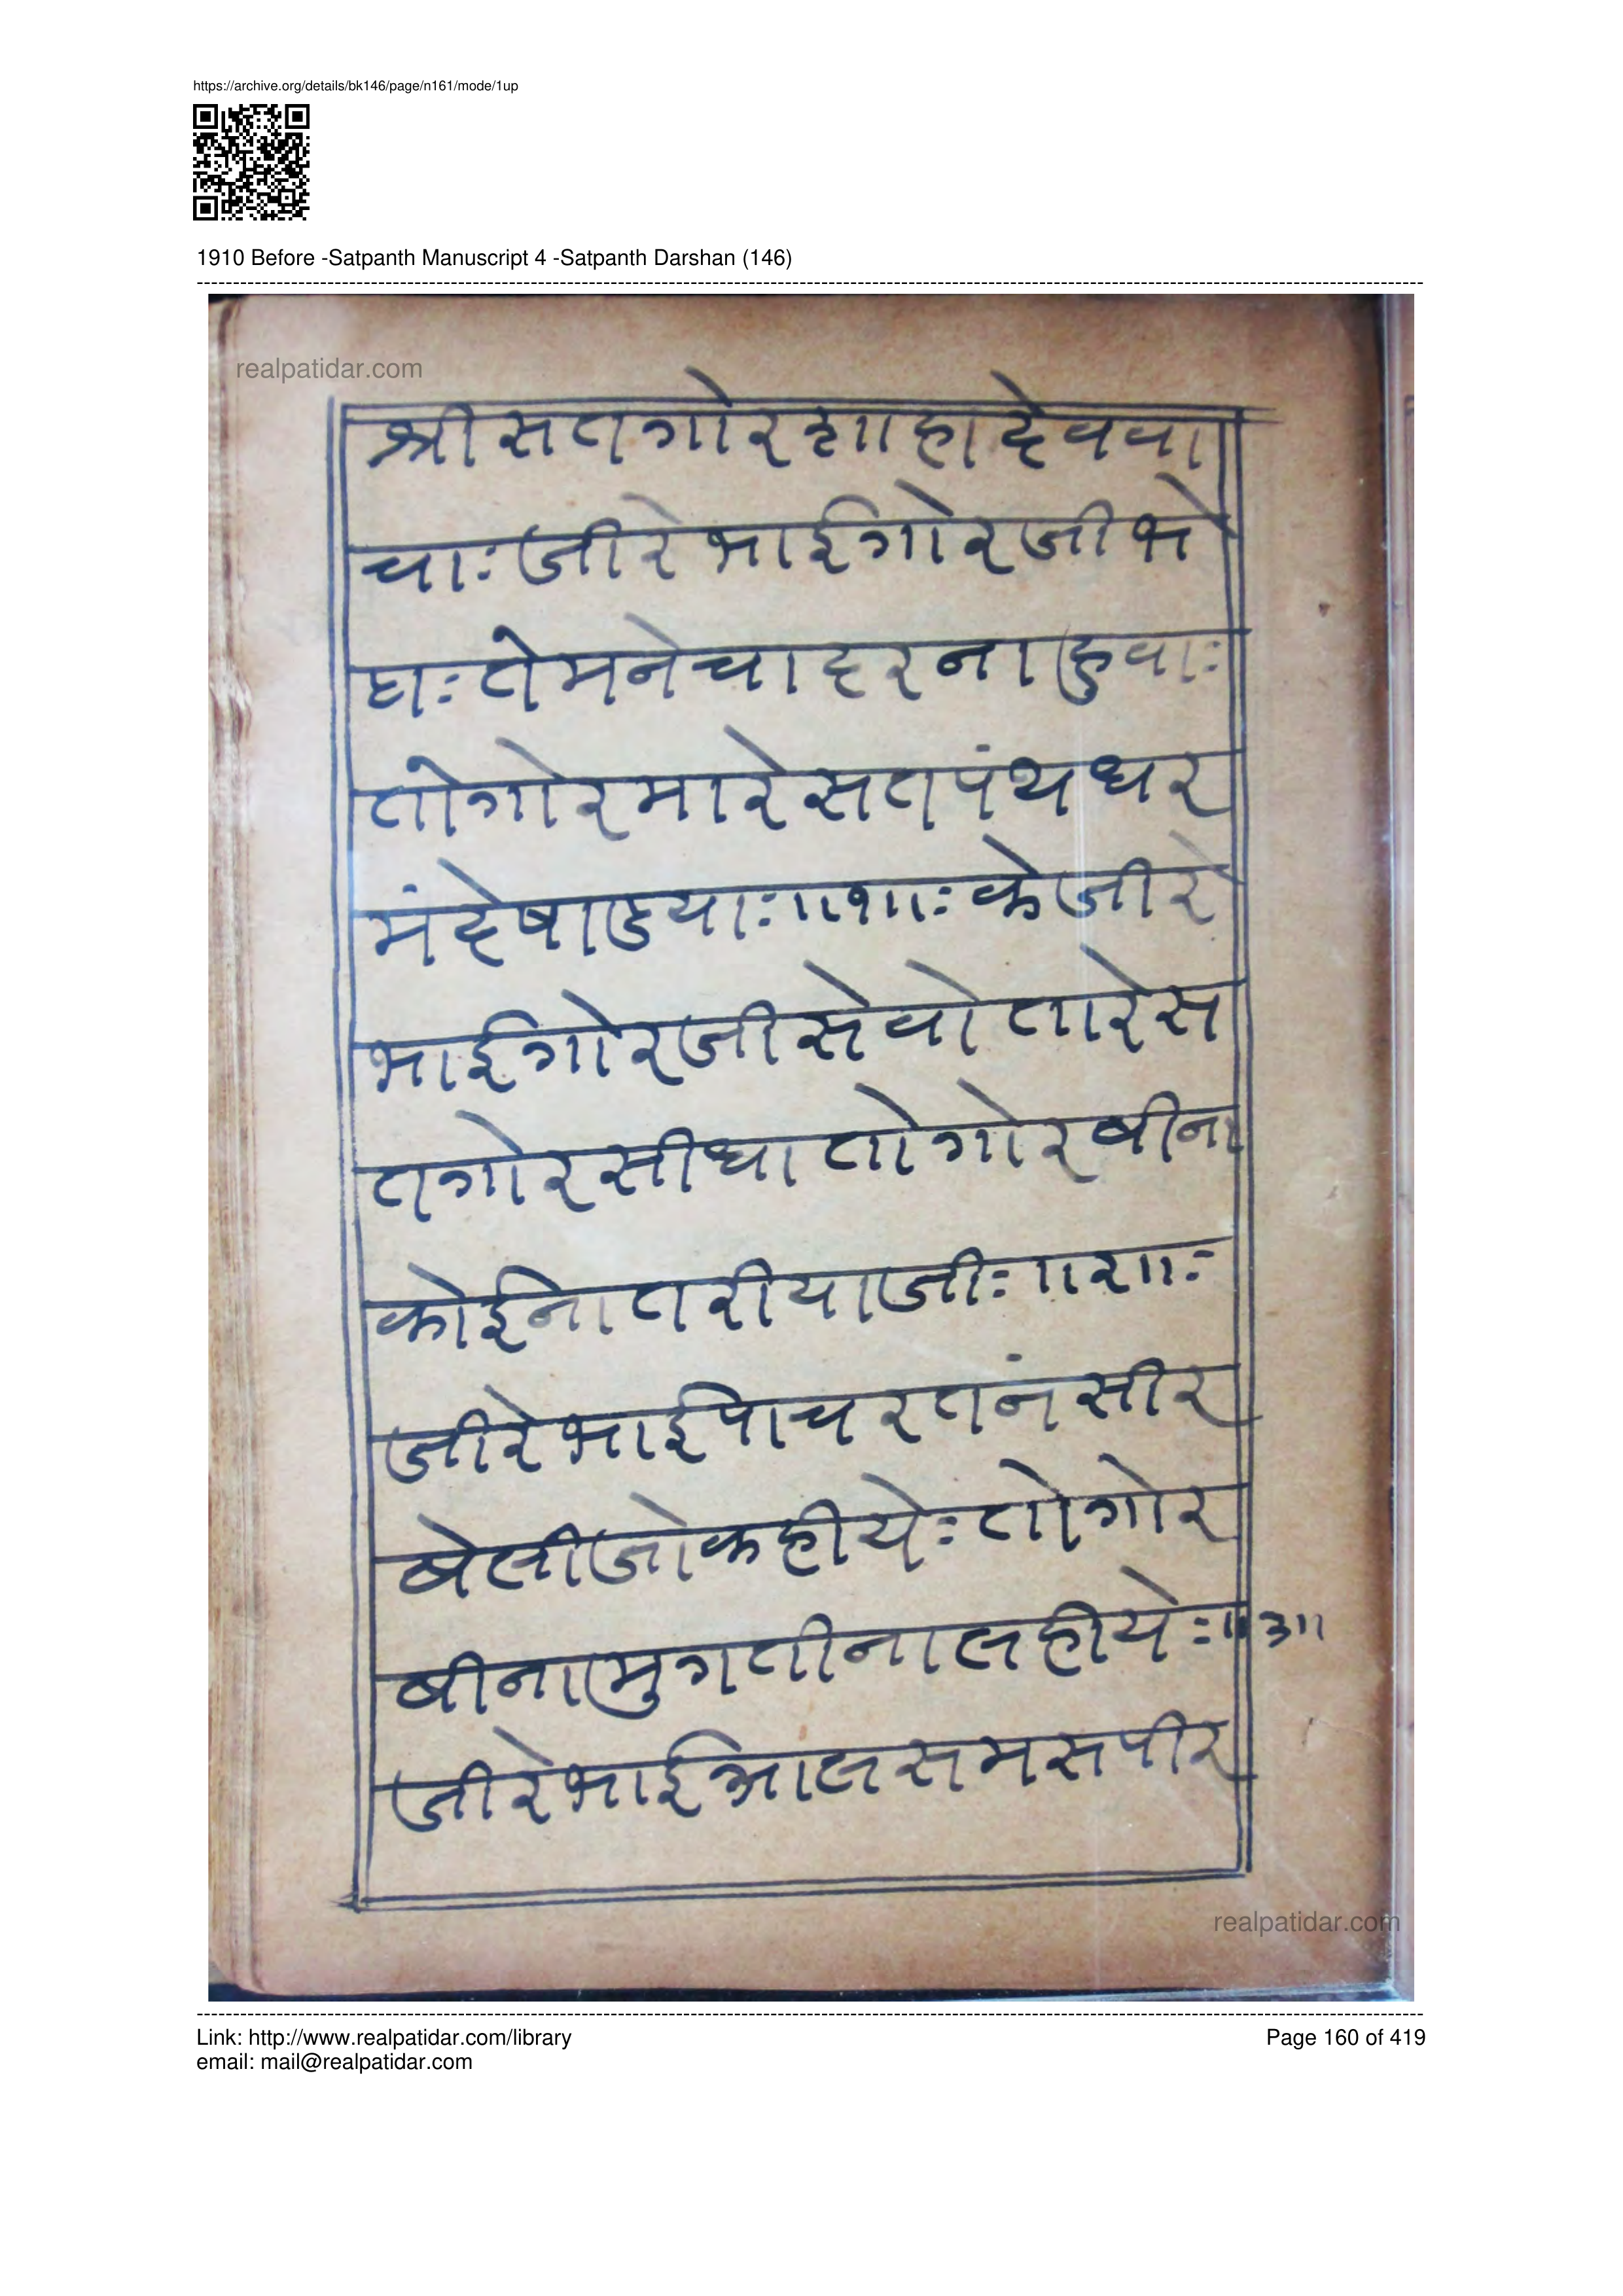 https://archive.org/details/bk146/page/n161/mode/1up
1910 Before -Satpanth Manuscript 4 -Satpanth Darshan (146)
realpatidar.com
श्रीसतगोरशाहादेववा
चाः जीरेभाईगोरजीभे
घाः तेमनेचाहरनाहुवाः
तोगोरमारेसतपंथधर
मंदेषाडयाः ॥१॥ः केजीरे
भाईगोरजीसेवोतारेस
तगोरसीधातोगोरबीना
कोईनातरीयाजीः ॥२॥ः
जीरेभाईपाचरतनंसीर
बेसीजोकहीयेः तोगोर
बीनामुगतीनालहीयेः ॥३॥
जीरेभाईआलसमसपीर
realpatidar.com
Link: http://www.realpatidar.com/library
Page 160 of 419
email: mail@realpatidar.com